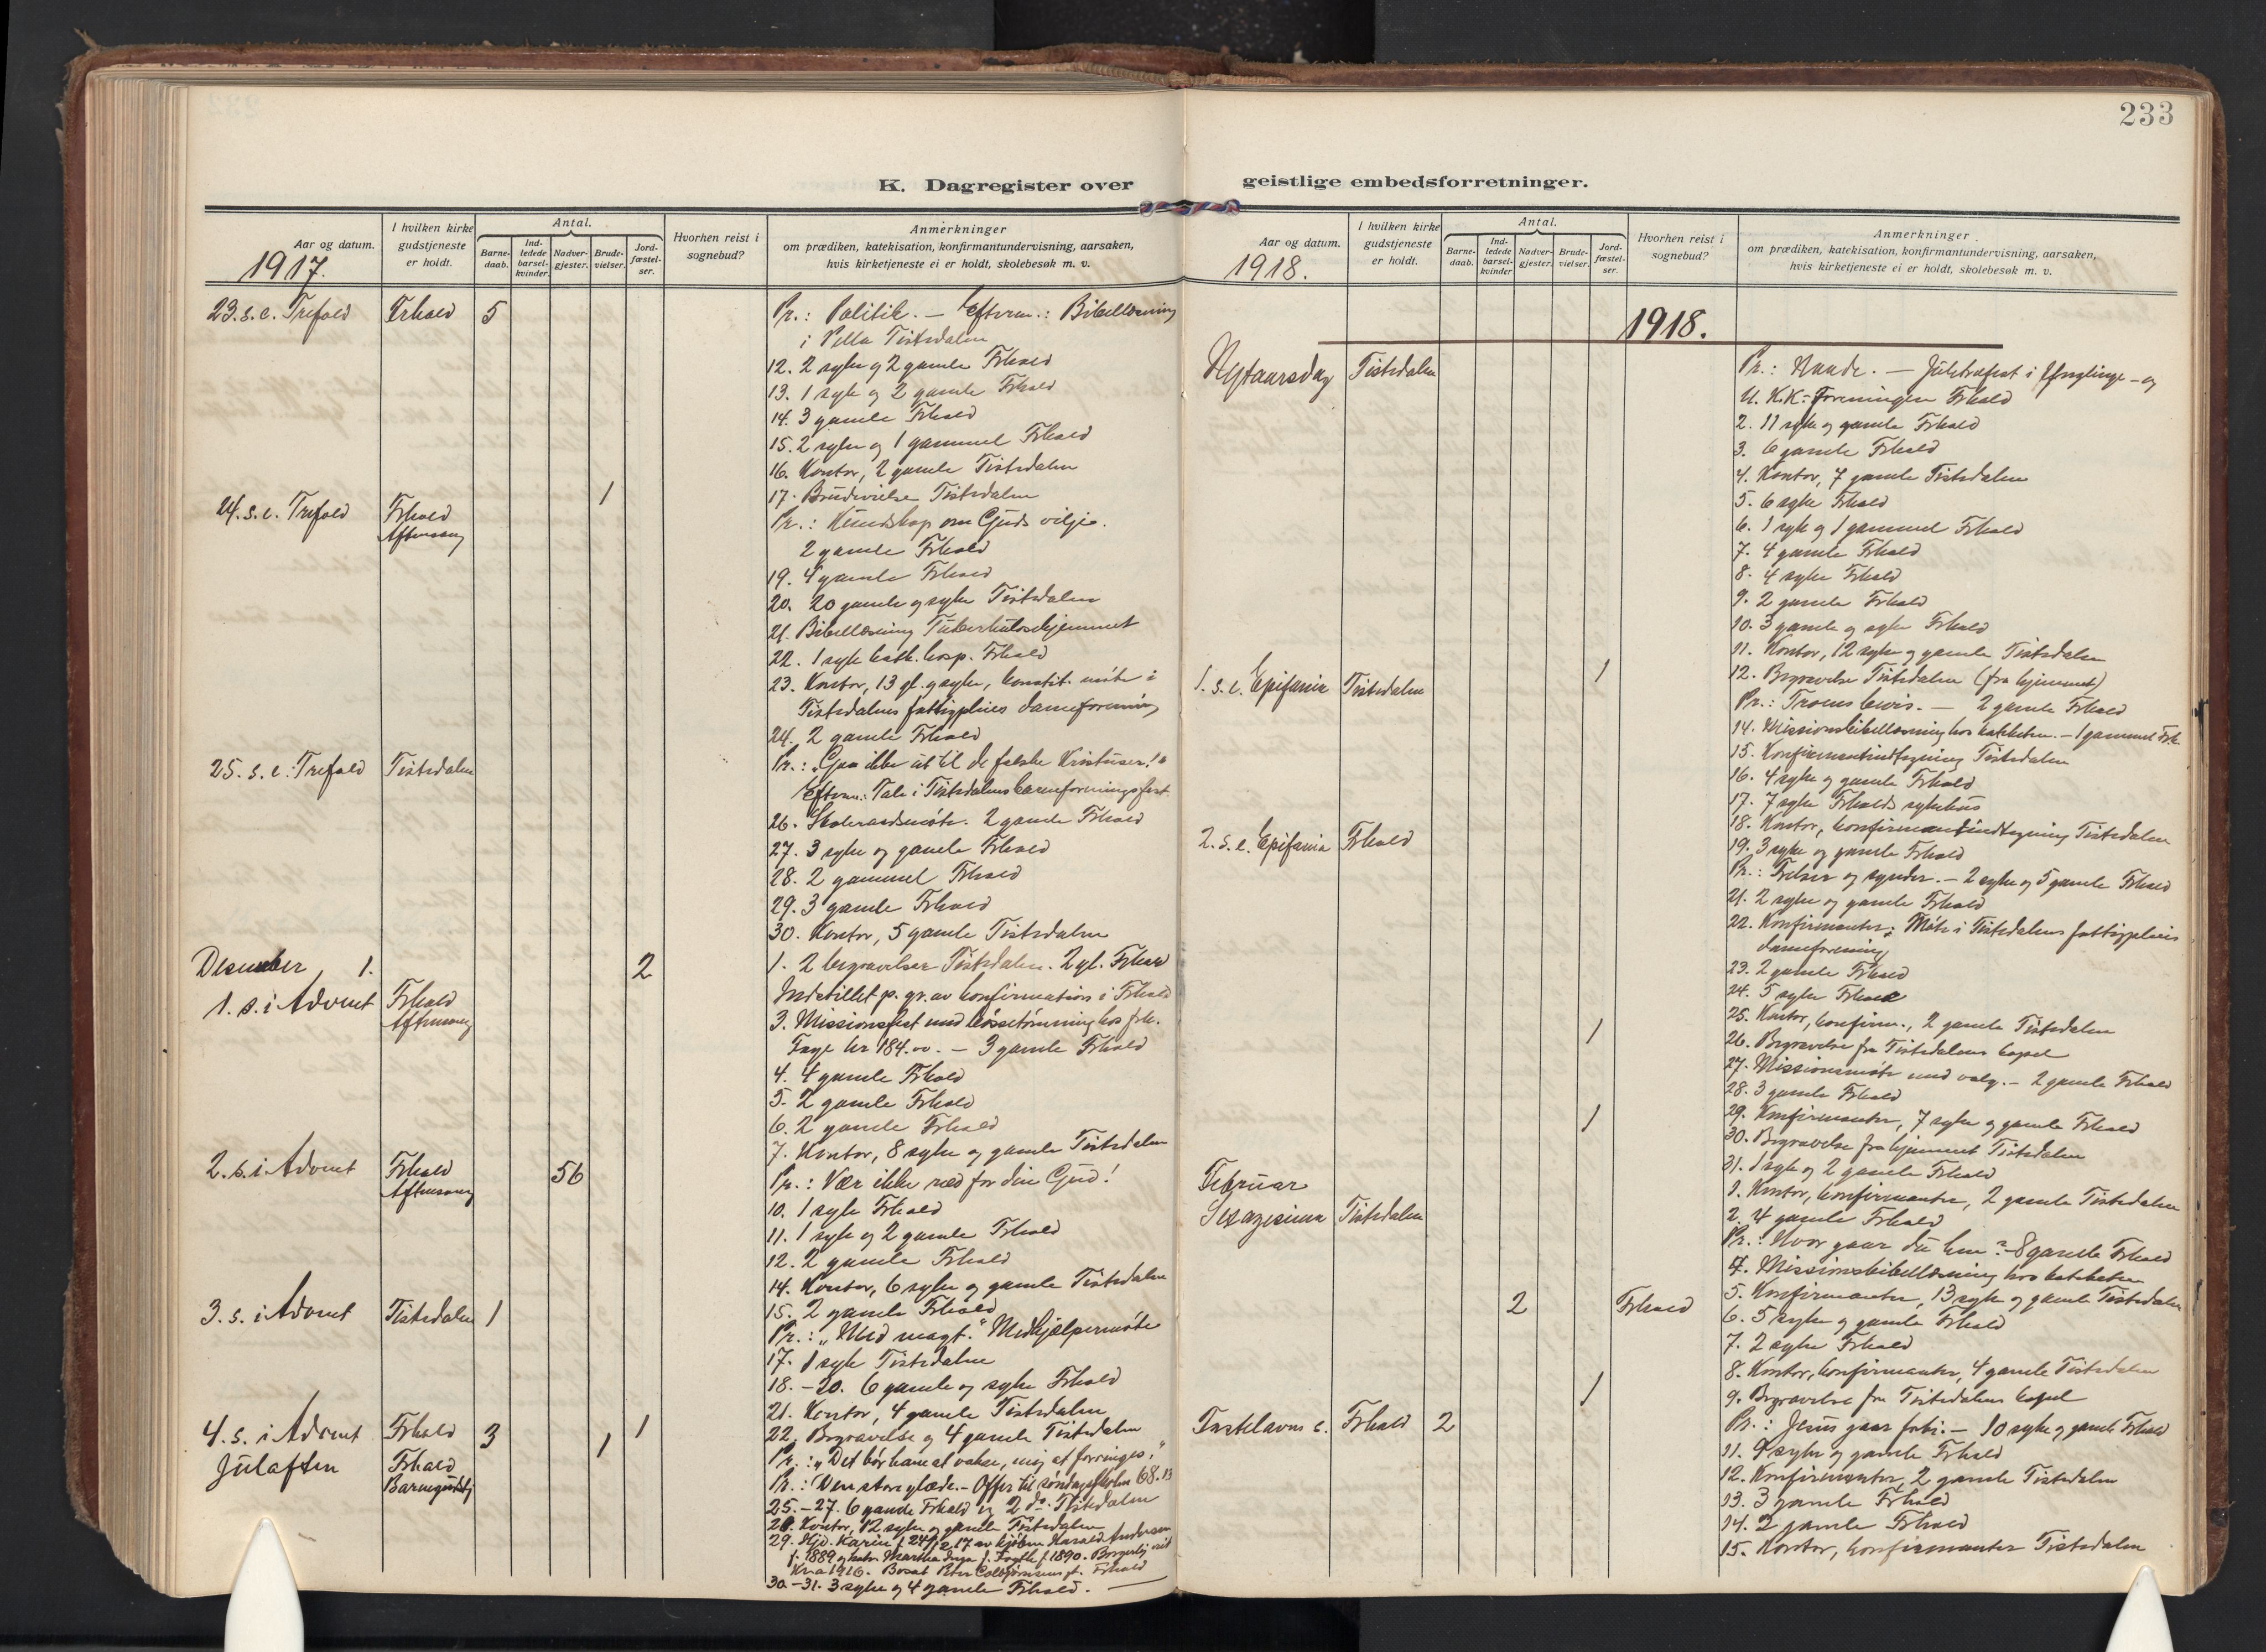 233
K. Dagregister over
Aar og datum.
1917.
I hvilken kirke gudstjeneste er holdt.
Antal.
Barnedaab.
Indledede barselkvinder.
Nadvergjester.
Brudevielser.
Jordfæstelser.
Hvorhen reist i sognebud?
Anmerkninger
om prædiken, katekisation, konfirmantundervisning, aarsaken,
hvis kirketjeneste ei er holdt, skolebesøk m. v.
23. s. e. Trefold Frhald 5 Pr.: Politik. — Efterm.: Bibellæsning
i Pella Tistedalen
12. 2 syke og 2 gamle Frhald
13. 1 syk og 2 gamle Frhald
14. 3 gamle Frhald
15. 2 syke og 1 gammel Frhald
16. Kontor, 2 gamle Tistedalen
1 17. Brudevielse Tistedalen
24. s. e. Trefold Frhald Aftensang Pr.: Kundskap om Guds vilje.
2 gamle Frhald
19. 4 gamle Frhald
20. 20 gamle og syke Tistedalen
21. Bibellæsning Tuberkulosehjemmet
22. 1 syk kath. hosp. Frhald
23. Kontor, 13 gl. og syke, konstit. møte i
Tistedalens fattigpleies dameforening
24. 2 gamle Frhald
25. s. e. Trefold Tistedalen Pr.: "Gaa ikke ut til de falske Kristuser!"
Efterm.: Tale i Tistedalens barneforeningsfest.
26. Skoleraadsmøte. 2 gamle Frhald
27. 3 syke og gamle Frhald
28. 2 gammel Frhald
29. 3 gamle Frhald
30. Kontor, 5 gamle Tistedalen
Desember 1. 2 1. 2 begravelser Tistedalen. 2 gl. Frhald
1. s. i Advent Frhald Aftensang Indstillet p. gr. av konfirmation i Frhald
3. Missionsfest med bøssetømning hos frk.
Faye kr 184.00. — 3 gamle Frhald
4. 4 gamle Frhald
5. 2 gamle Frhald
6. 2 gamle Frhald
7. Kontor, 8 syke og gamle Tistedalen
2. s. i Advent Frhald Aftensang 56 Pr.: Vær ikke ræd for din Gud!
10. 1 syk Frhald
11. 1 syk og 2 gamle Frhald
12. 2 gamle Frhald
14. Kontor, 6 syke og gamle Tistedalen
15. 2 gamle Frhald
3. s. i Advent Tistedalen 1 Pr.: "Med magt." Medhjælpermøte
17. 1 syk Tistedalen
18.–20. 6 gamle og syke Frhald
21. Kontor, 4 gamle Tistedalen
1 22. Begravelse og 4 gamle Tistedalen
4. s. i Advent Frhald 3 1 Pr.: "Det bør ham at vokse, mig at forringes."
Julaften Frhald Barnegudstj. Pr.: Den store glæde. – Offer til søndagsskolen 68.13
25.–27. 6 gamle Frhald og 2 do. Tistedalen
28. Kontor, 12 syke og gamle Tistedalen
29. Hjd. Karin f. 24/12 17 av kjøbm. Harald Andersen
f. 1889 og hstr. Martha Inga f. f. 1890. Borgerlig viet
Kr.a 1916. Bosat Peter gt. Frhald
30.–31. 3 syke og 4 gamle Frhald. —
geistlige embedsforretninger.
Aar og datum.
1918.
I hvilken kirke gudstjeneste er holdt.
Antal.
Barnedaab.
Indledede barselkvinder
Nadvergjester.
Brudevielser.
Jordfæstelser.
Hvorhen reist i sognebud?
Anmerkninger
om prædiken, katekisation, konfirmantundervisning, aarsaken,
hvis kirketjeneste ei er holdt, skolebesøk m. v.
1918.
Nytaarsdag Tistedalen Pr.: Naade. — Juletræfest i Ynglinge- og
U. K. K.-Foreningen Frhald
2. 11 syke og gamle Frhald
3. 6 gamle Frhald
4. Kontor, 7 gamle Tistedalen
5. 6 syke Frhald
6. 1 syk og 1 gammel Frhald
7. 4 gamle Frhald
8. 4 syke Frhald
9. 2 gamle Frhald
10. 3 gamle og syke Frhald
11. Kontor, 12 syke og gamle Tistedalen
1 12. Begravelse Tistedalen (fra hjemmet)
1. s. e. Epifania Tistedalen Pr.: Troens bevis. — 2 gamle Frhald
14. Missionsbibellæsning hos kateketen. – 1 gammel Frh.
15. Konfirmantindtegning Tistedalen
16. 4 syke og gamle Frhald
17. 7 syke Frhalds sykehus
18. Kontor, konfirmantindtegning Tistedalen
19. 3 syke og gamle Frhald
2. s. e. Epifania Frhald Pr.: Frelser og synder. – 2 syke og 5 gamle Frhald
21. 2 syke og gamle Frhald
22. Konfirmanter. Møte i Tistedalens fattigpleies
dameforening
23. 2 gamle Frhald
24. 5 syke Frhald
25. Kontor, konfirm., 2 gamle Tistedalen
1 26. Begravelse fra Tistedalens kapel
27. Missionsmøte med valg. – 2 gamle Frhald
28. 3 gamle Frhald
29. Konfirmanter, 7 syke og gamle Frhald
1 30. Begravelse fra hjemmet Tistedalen
31. 1 syk og 2 gamle Frhald
Februar 1. Kontor, konfirmanter, 2 gamle Tistedalen
2. 4 gamle Frhald
Sexagesima Tistedalen Pr.: Hvor gaar du hen? – 8 gamle Frhald
4. Missionsbibellæsning hos kateketen
5. Konfirmanter, 13 syke og gamle Tistedalen
2 Frhald 6. 5 syke og gamle Frhald
7. 2 syke Frhald
8. Kontor, konfirmanter, 4 gamle Tistedalen
1 9. Begravelse fra Tistedalens kapel
Fastelavns s. Frhald 2 Pr.: Jesus gaar forbi. – 10 syke og gamle Frhald
11. 9 syke og gamle Frhald
12. Konfirmanter, 2 gamle Tistedalen
13. 3 gamle Frhald
14. 2 gamle Frhald
15. Kontor, konfirmanter Tistedalen